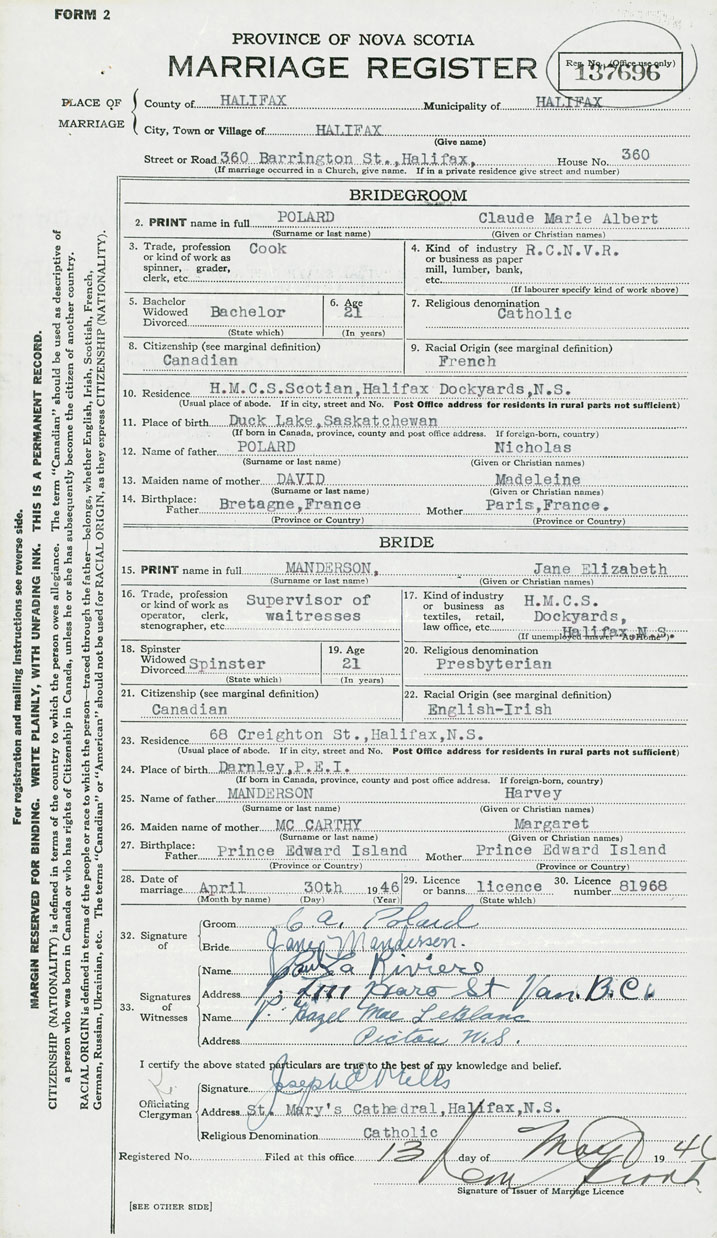 FORM 2
PROVINCE OF NOVA SCOTIA
MARRIAGE REGISTER
Reg. No. (Office use only)
137696
PLACE OF MARRIAGE
County of HALIFAX Municipality of HALIFAX
City, Town or Village of HALIFAX
(Give name)
Street or Road 360 Barrington St.,Halifax, House No. 360
(If marriage occurred in a Church, give name. If in a private residence give street and number)
BRIDEGROOM
2. PRINT name in full POLARD Claude Marie Albert
(Surname or last name) (Given or Christian names)
3. Trade, profession or kind of work as spinner, grader, clerk, etc. Cook
4. Kind of industry or business as paper mill, lumber, bank, etc. R.C.N.V.R.
(If labourer specify kind of work above)
5. Bachelor Widowed Divorced Bachelor
(State which)
6. Age 21
(In years)
7. Religious denomination
Catholic
8. Citizenship (see marginal definition)
Canadian
9. Racial Origin (see marginal definition)
French
10. Residence H.M.C.S.Scotian,Halifax Dockyards,N.S.
(Usual place of abode. If in city, street and No. Post Office address for residents in rural parts not sufficient)
11. Place of birth Duck Lake,Saskatchewan
(If born in Canada, province, county and post office address. If foreign-born, country)
12. Name of father POLARD Nicholas
(Surname or last name) (Given or Christian names)
13. Maiden name of mother DAVID Madeleine
(Surname or last name) (Given or Christian names)
14. Birthplace: Father Bretagne,France Mother Paris,France.
(Province or Country) (Province or Country)
BRIDE
15. PRINT name in full MANDERSON, Jane Elizabeth
(Surname or last name) (Given or Christian names)
16. Trade, profession or kind of work as operator, clerk, stenographer, etc Supervisor of waitresses
17. Kind of industry or business as textiles, retail, law office, etc. H.M.C.S. Dockyards, Halifax N.S.
(If unemployed answer "At Home").
18. Spinster Widowed Divorced Spinster
(State which)
19. Age 21
(In years)
20. Religious denomination
Presbyterian
21. Citizenship (see marginal definition)
Canadian
22. Racial Origin (see marginal definition)
English-Irish
23. Residence 68 Creighton St.,Halifax,N.S.
(Usual place of abode. If in city, street and No. Post Office address for residents in rural parts not sufficient)
24. Place of birth Darnley,P.E.I.
(If born in Canada, province, county and post office address. If foreign-born, country)
25. Name of father MANDERSON Harvey
(Surname or last name) (Given or Christian names)
26. Maiden name of mother MC CARTHY Margaret
(Surname or last name) (Given or Christian names)
27. Birthplace: Father Prince Edward Island Mother Prince Edward Island
(Province or Country) (Province or Country)
28. Date of marriage April 30th 1946
(Month by name) (Day) (Year)
29. Licence or banns licence
(State which)
30. Licence number 81968
32. Signature of
Groom C. A. Polard
Bride Jane Manderson.
33. Signatures of Witnesses
Name Paul La Riviere
Address St Van. B.C.
Name Hazel Mae LeBlanc
Address Pictou N.S.
I certify the above stated particulars are true to the best of my knowledge and belief.
Officiating Clergyman
Signature Joseph
Address St. Mary's Cathedral,Halifax,N.S.
Religious Denomination Catholic
Registered No. Filed at this office 13 day of May 1946
Signature of Issuer of Marriage Licence
[SEE OTHER SIDE]
For registration and mailing instructions see reverse side.
MARGIN RESERVED FOR BINDING. WRITE PLAINLY, WITH UNFADING INK. THIS IS A PERMANENT RECORD.
CITIZENSHIP (NATIONALITY) is defined in terms of the country to which the person owes allegiance. The term "Canadian" should be used as descriptive of
a person who was born in Canada or who has rights of Citizenship in Canada, unless he or she has subsequently become the citizen of another country.
RACIAL ORIGIN is defined in terms of the people or race to which the person—traced through the father—belongs, whether English, Irish, Scottish, French,
German, Russian, Ukrainian, etc. The terms "Canadian" or "American" should not be used for RACIAL ORIGIN, as they express CITIZENSHIP (NATIONALITY).